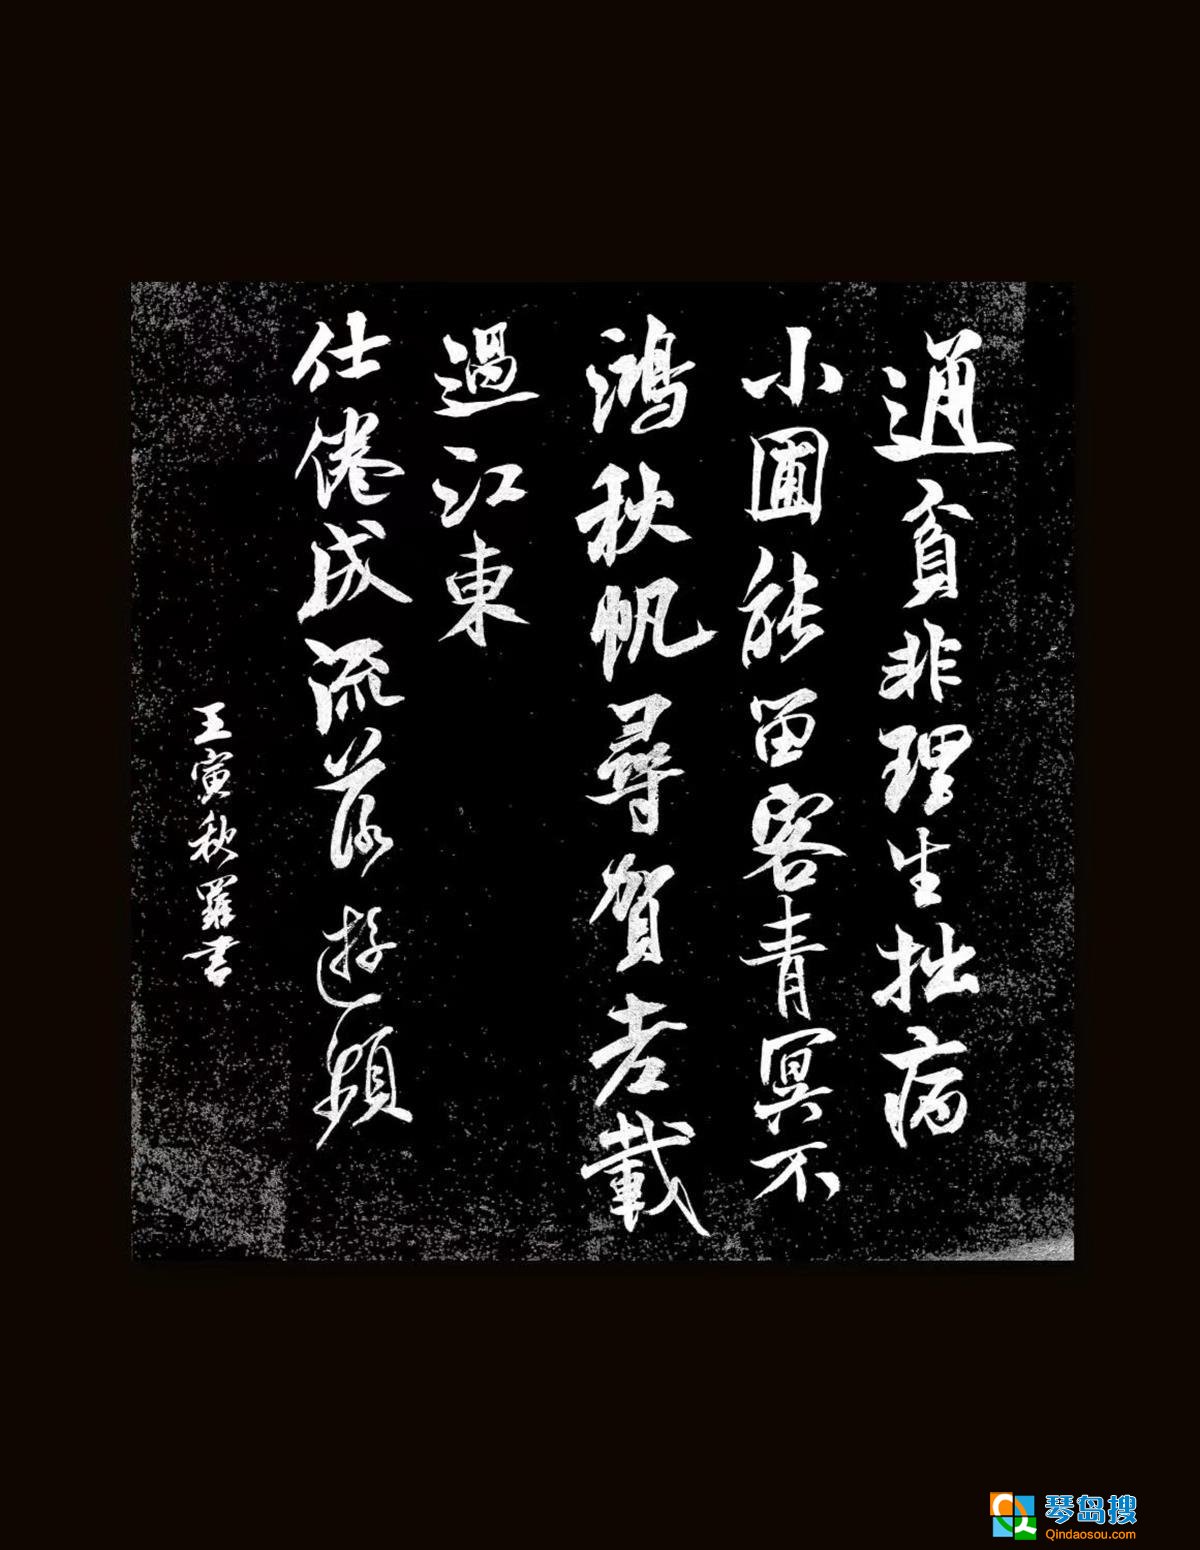 通貧非理生拙病
小圃能留客青冥不
鴻秋帆尋賀老載
過江東
仕倦成流落遊頻
壬寅秋羅書
琴岛搜
Qindaosou.com